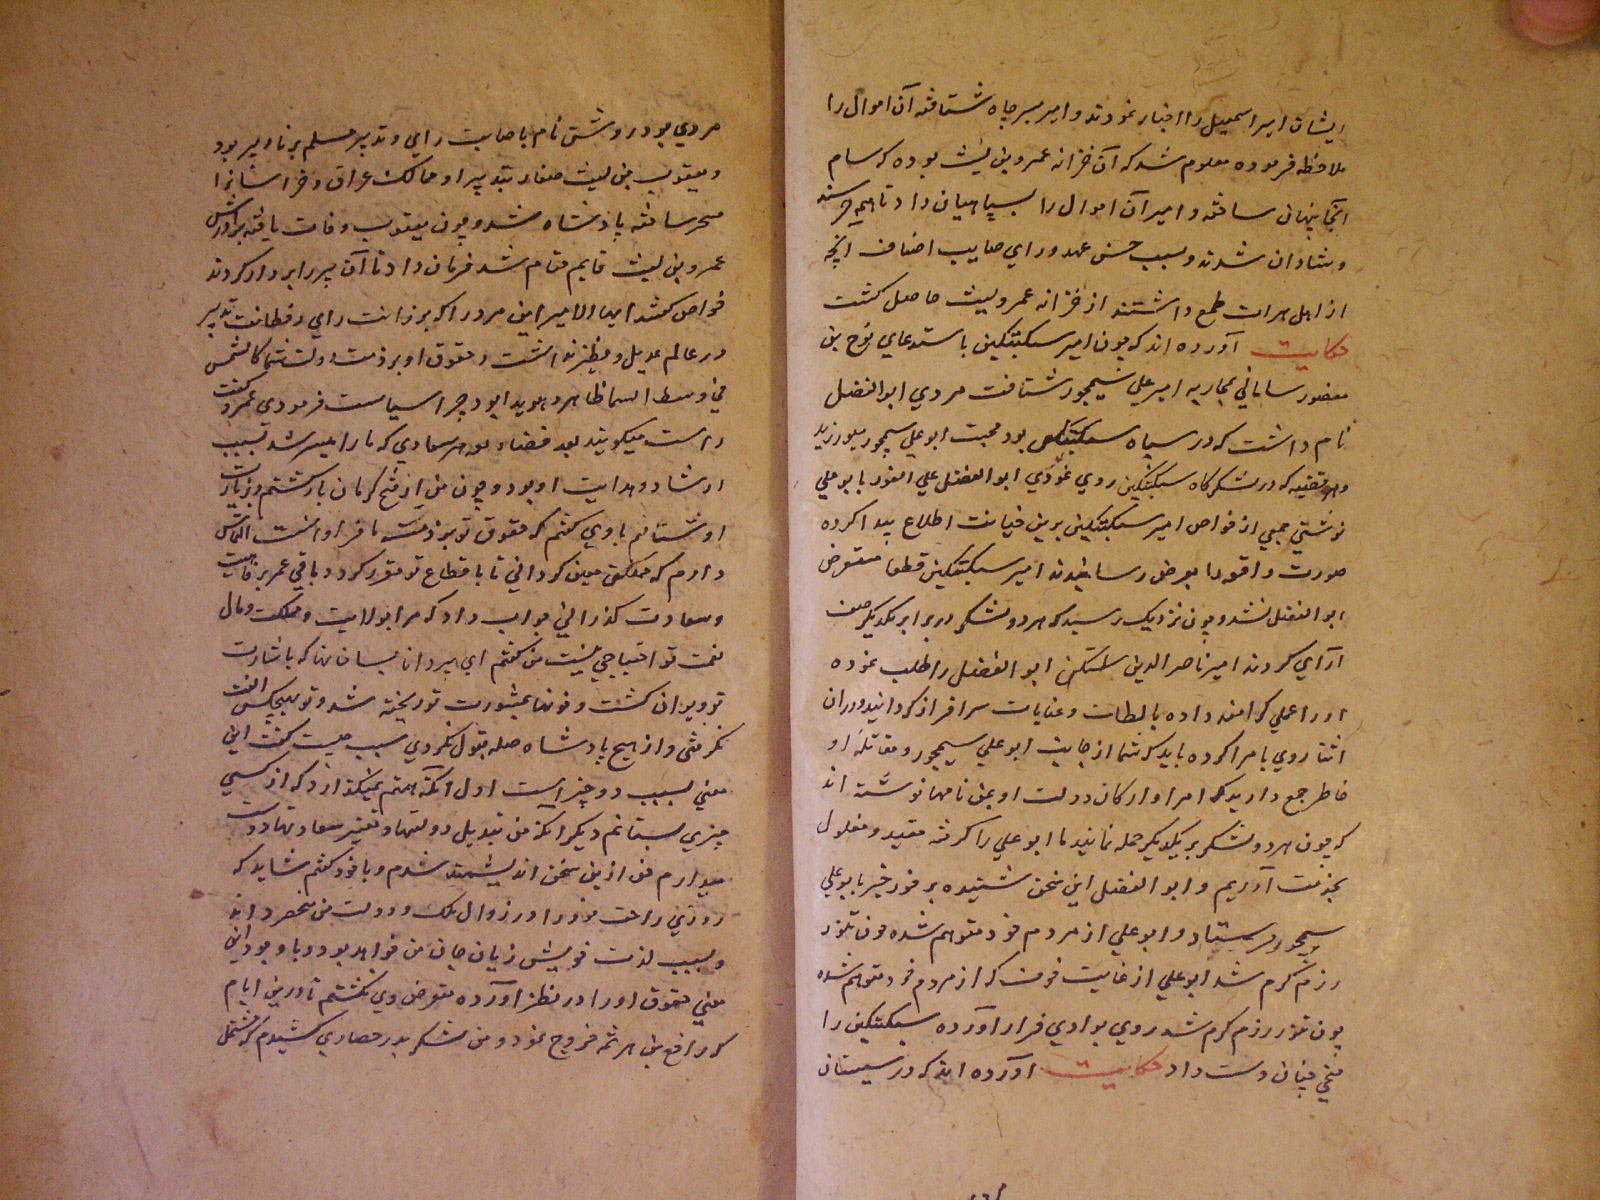 ایشان امیر اسمعیل را اخبار نمودند و امیر بسر چاه شتافته آن اموال را
ملاحظه فرموده معلوم شد که آن خزانه عمرو بن لیث بوده که سام
آنجا پنهان ساخته و امیر آن اموال را بسپاهیان داد تا همه خرسند
و شادان شدند و بسبب حسن عهد و رای صایب اضعاف آنچه
از اهل هرات طمع داشتند از خزانه عمرو لیث حاصل کشت
حکایت آورده اند که چون امیر سبکتکین باستدعای نوح بن
منصور سامانی بمحاربه امیر علی سیمجور شتافت مردی ابو الفضل
نام داشت که در سپاه سبکتکین بود محبت ابو علی سیمجور میورزید
و هر قضیه که در لشکرکاه سبکتکین روی نمودی ابو الفضل علی الفور بابو علی
نوشتی جمعی از خواص امیر سبکتکین برین خیانت اطلاع پیدا کرده
صورت واقعه را بعرض رسانیدند امیر سبکتکین قطعا متعرض
ابو الفضل نشد و چون نزدیک رسید که هر دو لشکر در برابر یکدیکر صف
آرای کردند امیر ناصر الدین سبکتکین ابو الفضل را طلب نموده
او را عملی کرامند داده بالطاف و عنایات سرافراز کردانید و در ان
اثنا روی بامرا کرده باید که شما از جانب ابو علی سیمجور و مقاتله او
خاطر جمع دارید که امرا و ارکان دولت او بمن نامها نوشته اند
که چون هر دو لشکر بر یکدیکر حمله نمایند ما ابو علی را کرفته مقید و مغلول
بخدمت آوریم و ابو الفضل این سخن شنیده بر فور خبر بابو علی
سیمجور فرستاد و ابو علی از مردم خود متوهم شده چون تنور
رزم کرم شد ابو علی از غایت خوف که از مردم خود متوهم شده
چون تنور رزم کرم شد روی بوادی فرار آورده سبکتکین را
فتحی چنان دست داد حکایت آورده اند که در سیستان
مردی بود روشن نام باصابت رای و تدبیر مسلم برنا و پیر بود
و یعقوب بن لیث صفار بتدبیر او ممالک عراق و خراسانرا
مسخر ساخته پادشاه شد و چون یعقوب وفات یافته برادرش
عمرو بن لیث قایم مقام شد فرمان داد تا آن پیر را بردار کردند
خواص کفتند ایها الامیر این مرد را که برزانت رای و فطانت تدبیر
در عالم عدیل و نظیر نداشت و حقوق او بر ذمت دولت شما کالشمس
فی وسط السما ظاهر و هویدا بود چرا سیاست فرمودی عمرو کفت
راست میکویید بعد قضاء الله هر سعادتی که ما را میسر شد بسبب
ارشاد و هدایت او بود و چون من از فتح کرمان بازکشتم و زیارت
او شتافتم با وی کفتم که حقوق تو بر ذمت ما فراوانست التماس
دارم که مملکتی معین کردانی تا باقطاع تو مقرر کردد و باقی عمر برفاهیت
و سعادت کذرانی جواب داد که مرا بولایت و مملکت و مال
نعمت تو احتیاجی نیست من کفتم ای پیر دانا بسا خانها که باشارت
تو ویران کشت و خونها بمشورت تو ریخته شد و تو بهیچکس الفت
نکرفتی و از هیچ پادشاه صله قبول نکردی سبب چیست کفت این
معنی بسبب دو چیز است اول آنکه همتم نمیکذارد که از کسی
چیزی بستانم دیکر آنکه من تبدیل دولتها و تغییر سعادتها دوست
میدارم من ازین سخن اندیشمند شدم و با خود کفتم شاید که
روزی راحت خود را در زوال ملک و دولت من منحصر داند
و بسبب لذت خویش زیان جان من خواهد بود و با وجود این
معنی حقوق او را در نظر آورده متعرض وی نکشتم تا درین ایام
که رافع بن هرثمه خروج نمود و من لشکر بدر حصاری کشیدم که مشتمل